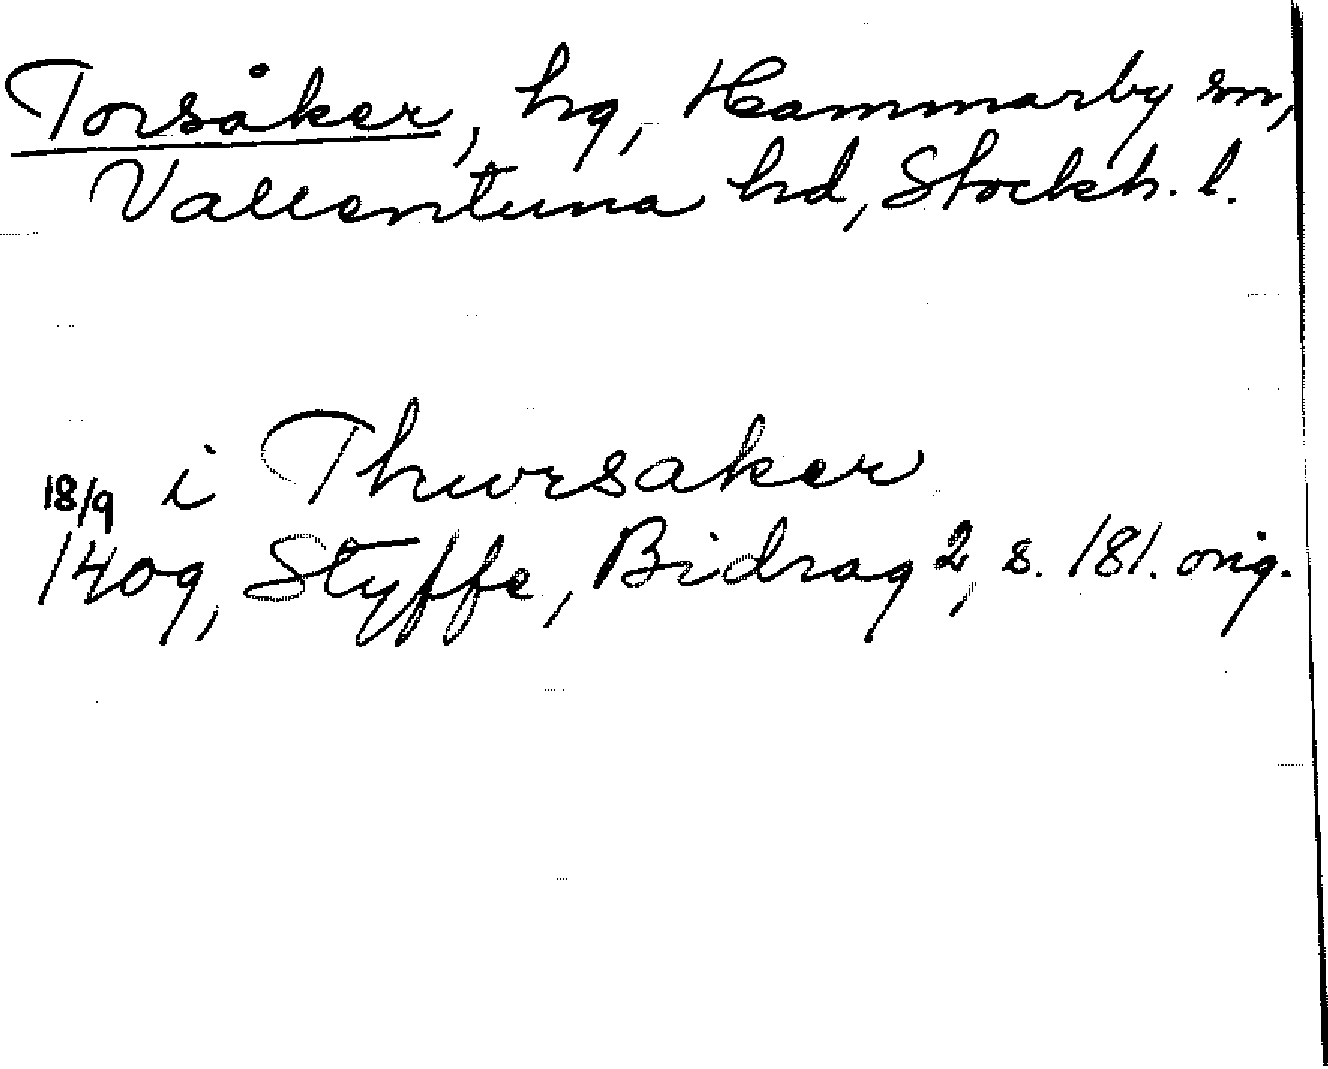 Torsåker, hg, Hammarby sn,
Vallentuna hd, Stockh. l.
i Thursaker
18/9
1409, Styffe, Bidrag 2, s. 181. orig.